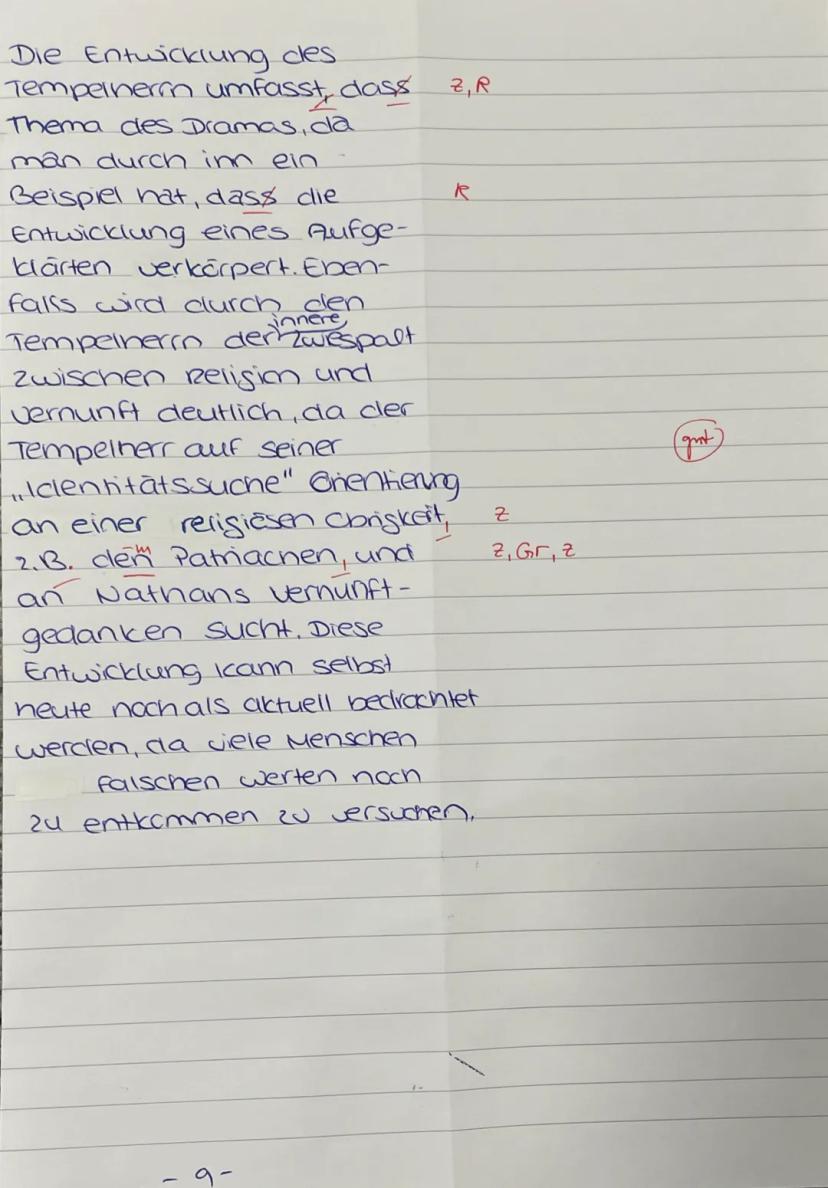 Die Entwicklung des
Tempelherrn umfasst, dass Z, R
Thema des Dramas, da
man durch ihn ein
Beispiel hat, dass die R
Entwicklung eines Aufge-
klärten verkörpert. Eben-
falls wird durch den
innere
Tempelherrn der Zwiespalt
zwischen Religion und
Vernunft deutlich, da der
Tempelherr auf seiner gut
„Identitätssuche" Orientierung
an einer religiösen Obrigkeit, Z
m
z.B. den Patriachen, und Z, Gr, Z
an Nathans Vernunft-
gedanken sucht. Diese
Entwicklung kann selbst
heute noch als aktuell bedrachtet
werden, da viele Menschen
falschen Werten noch
zu entkommen zu versuchen.
- 9 -